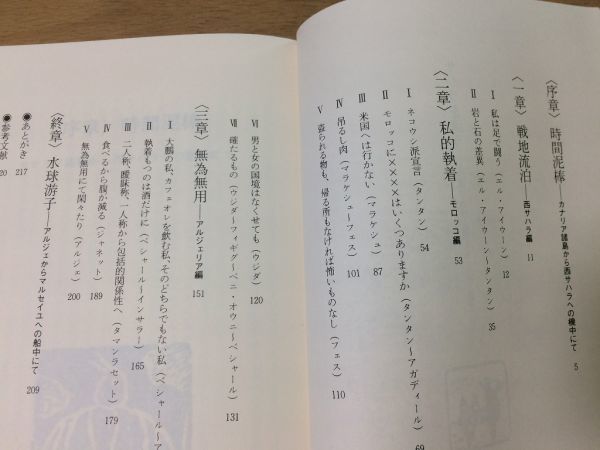 〈序章〉 時間泥棒——カナリア諸島から西サハラへの機中にて 5
〈一章〉 戦地流泊——西サハラ編 11
Ⅰ 私は足で闘う(エル・アイウーン) 12
Ⅱ 岩と石の差異(エル・アイウーン〜タンタン) 35
〈二章〉 私的執着——モロッコ編 53
Ⅰ ネコウシ派宣言(タンタン) 54
Ⅱ モロッコに××××はいくつありますか(タンタン〜アガディール) 69
Ⅲ 米国へは行かない(マラケシュ) 87
Ⅳ 吊るし肉(マラケシュ〜フェス) 101
Ⅴ 盗られる物も、帰る所もなければ怖いものなし(フェス) 110
Ⅵ 男と女の国境はなくせても(ウジダ) 120
Ⅶ 確たるもの(ウジダ〜フィギグ〜ベニ・オウニ〜ベシャール) 131
〈三章〉 無為無用——アルジェリア編 151
Ⅰ 大鵬の私、カフェオレを飲む私、そのどちらでもない私(ベシャール〜ア
Ⅱ 執着もつのは酒だけに(ベシャール〜インサラー) 165
Ⅲ 二人称、曖昧称、一人称から包括的関係性へ(タマンラセット) 179
Ⅳ 食べるから腹が減る(ジャネット) 189
Ⅴ 無為無用にて閑々たり(アルジェ) 200
〈終章〉 水球游子——アルジェからマルセイユへの船中にて 209
●あとがき 217
●参考文献 20